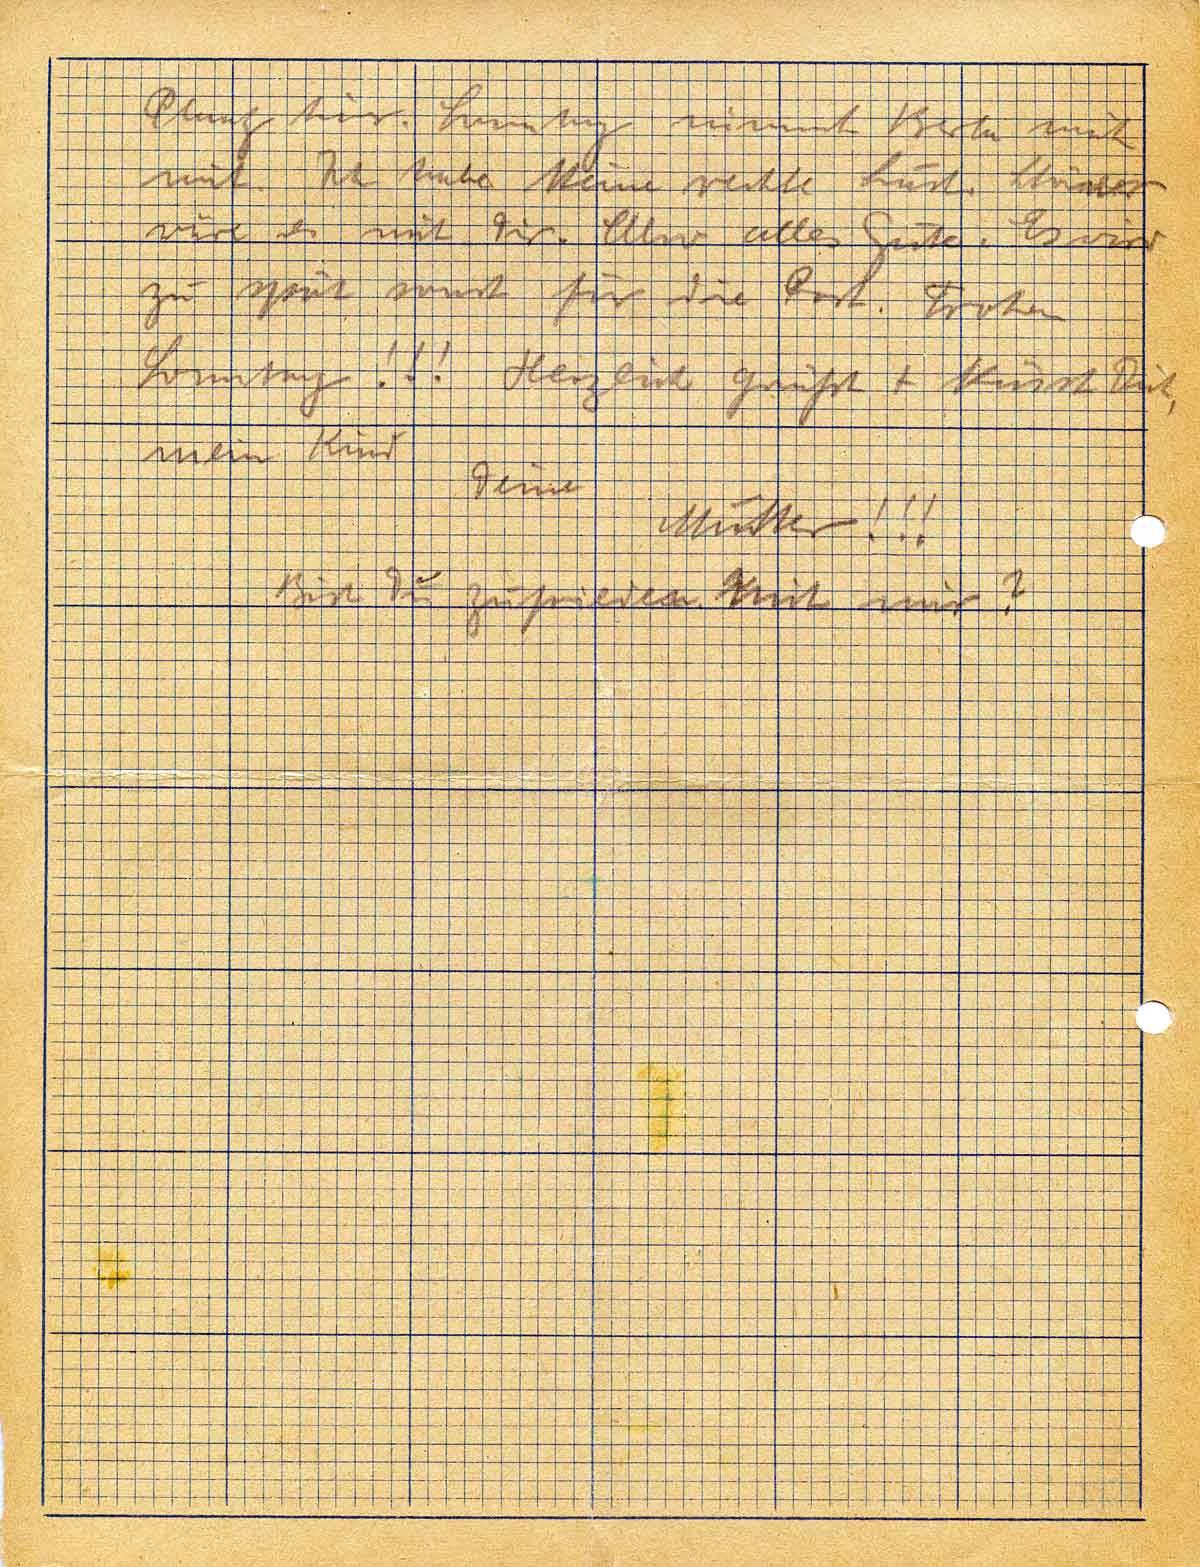 hier. Sonntag nimmt Berta mich
mit. Ich habe keine rechte Lust.
wäre es mit Dir. Nur alles Gute. Es wird
zu spät sonst für die Post. Frohen
Sonntag!!! Herzlich grüßt + küsst Dich,
mein Kind
Deine
Mutter!!!
Bist Du zufrieden mit mir?